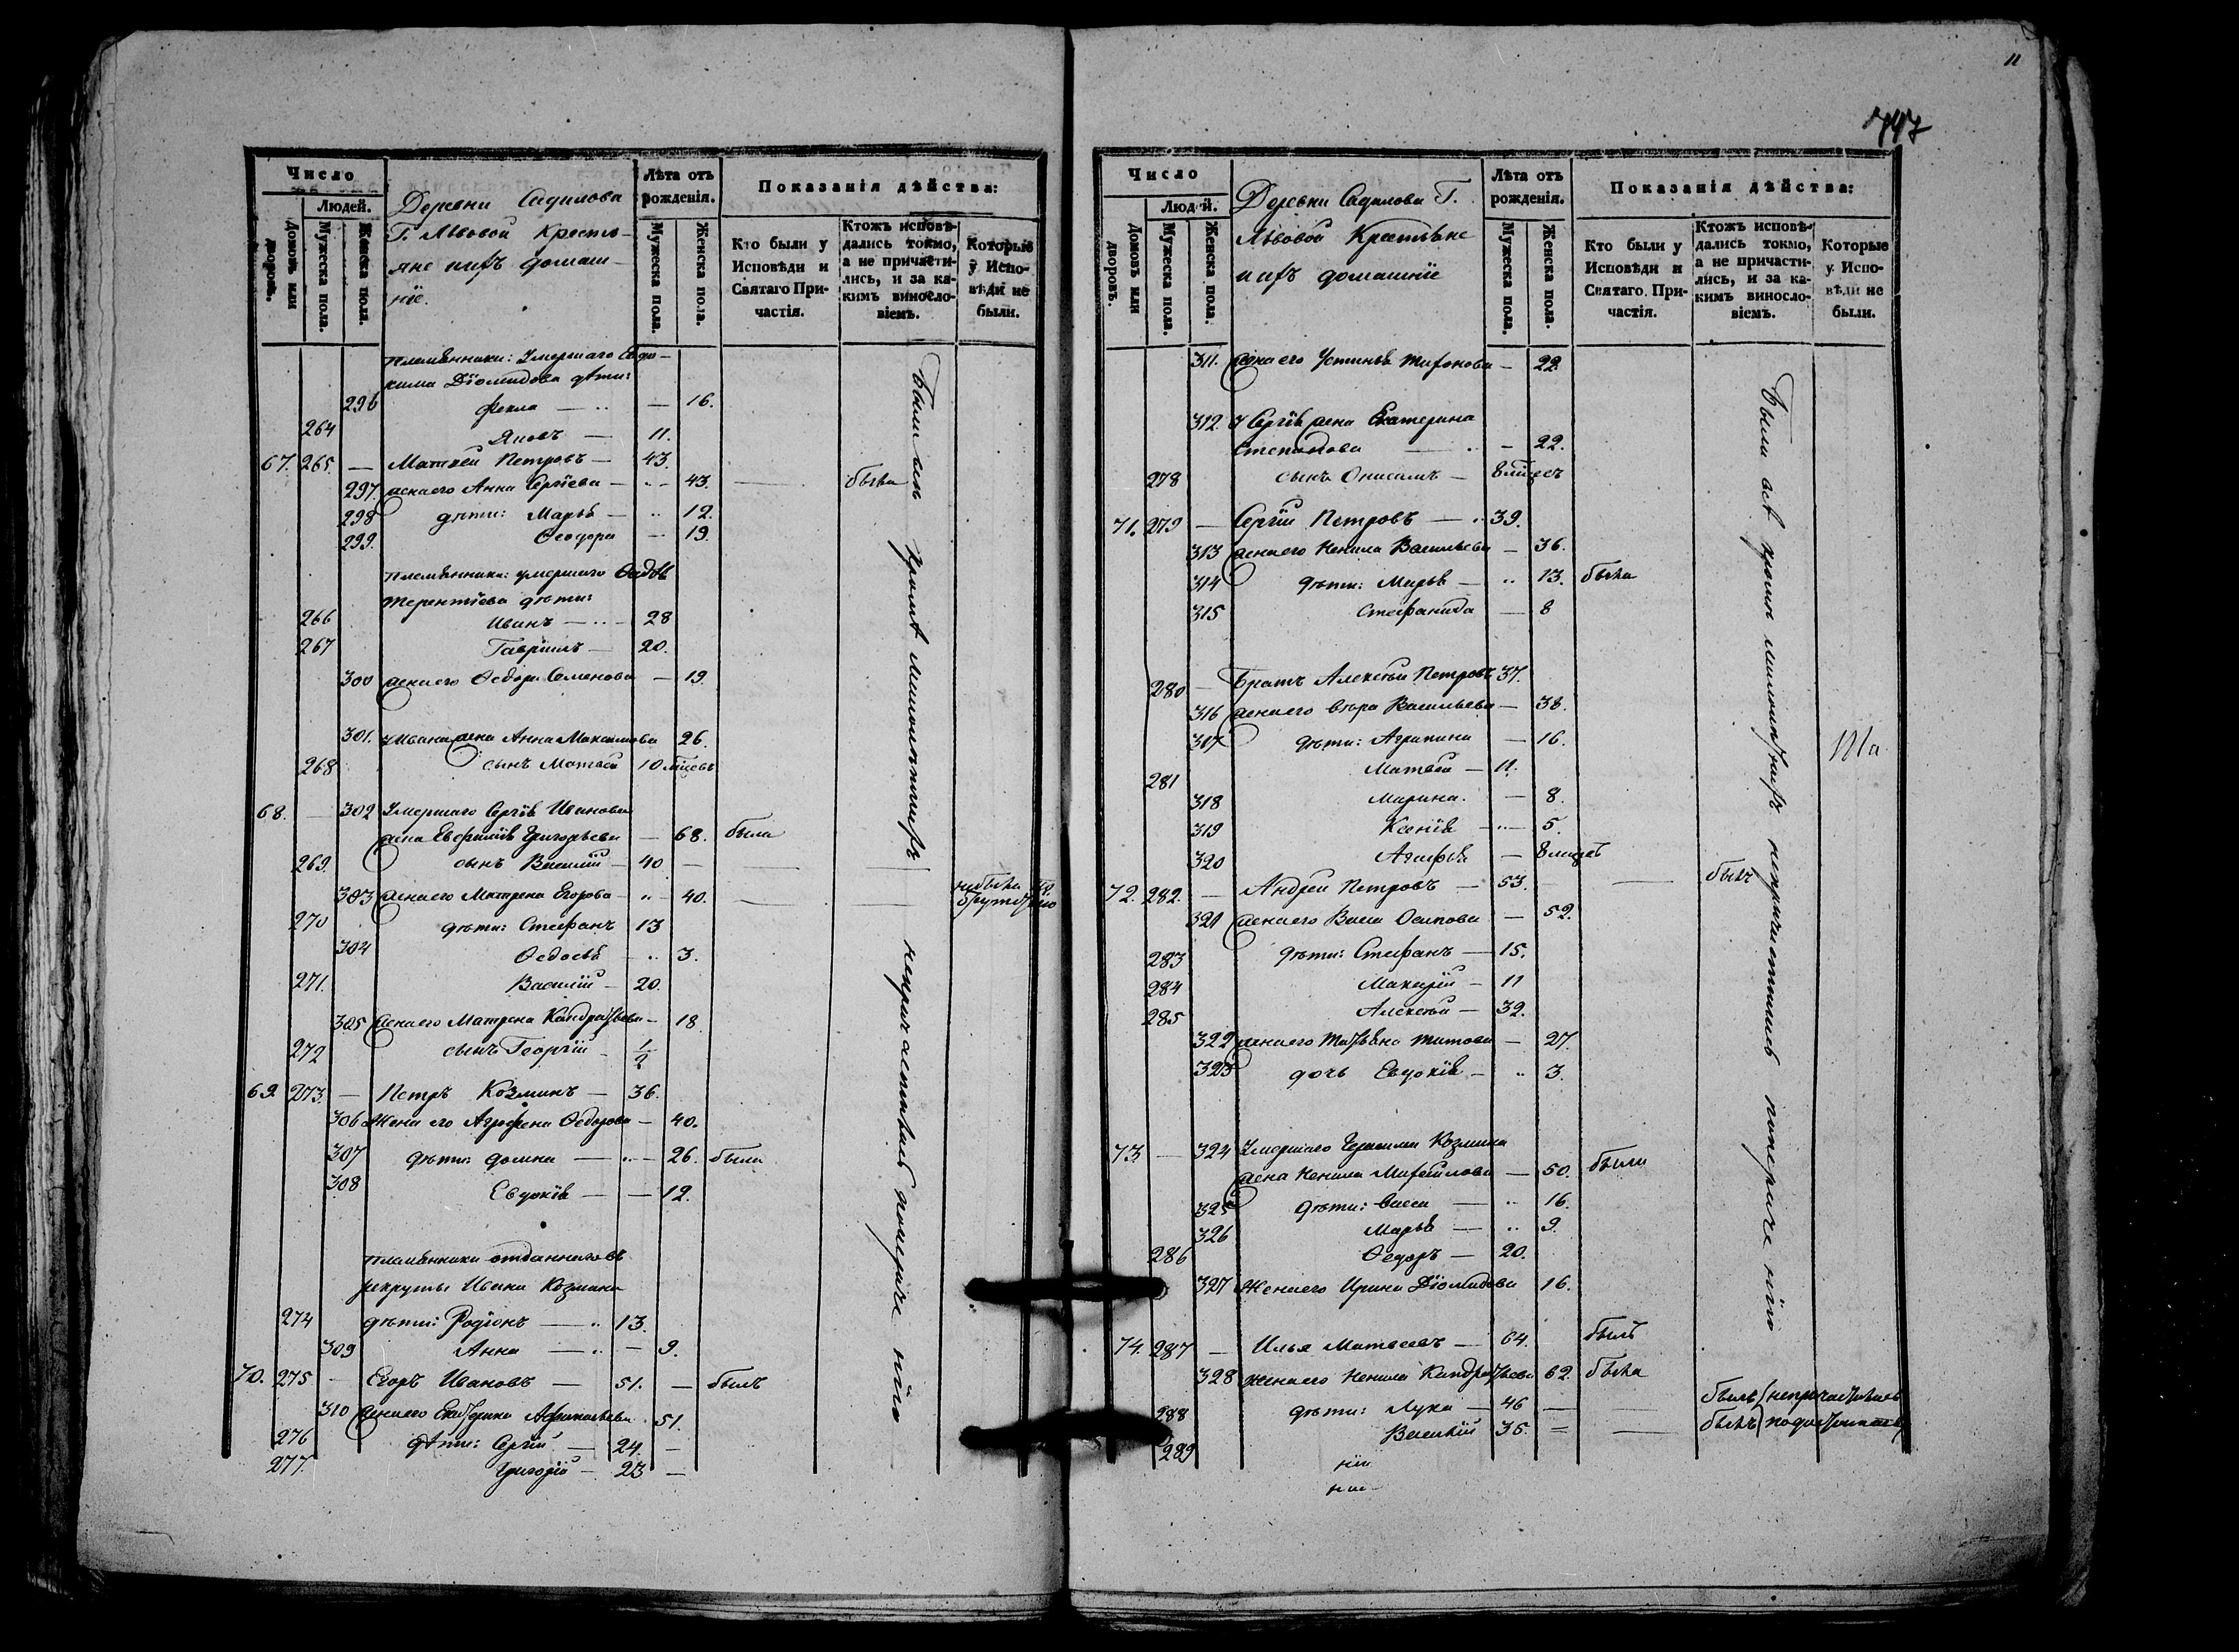 11
747
Число
Людей.
Домовъ или дворовъ.
Мужеска пола.
Женска пола.
Деревни Садилова
Г. Львовой Кресть-
яне и ихъ домаш-
ніе.
Лѣта отъ рожденія.
Мужеска пола.
Женска пола.
Показанія дѣйства:
Кто были у Исповѣди и Святаго Причастія.
Ктожъ исповѣдались токмо, а не причастились, и за какимъ винословіемъ.
Которые у Исповѣди не были.
племянники: Умершаго
кима Діомидова дѣти:
296 Фекла — 16.
264 Яковъ — 11.
67. 265. — Матвей Петровъ — 43.
297. жена его Анна Сергіева — 43. была
298 дѣти: Марья — 12.
299. Ѳеодора — 19.
племянники: умершаго
Терентіева дѣти:
266 Иванъ — 28
267 Гаврилъ — 20.
300 жена его Ѳедора Семенова — 19.
301. у Ивана жена Анна Максимова 26.
268 сынъ Матвей 10 мѣсецъ
68. — 302 Умершаго Сергѣя Иванова
жена Евфимія Григорьева — 68. была
269. сынъ Василій — 40 —
303 жена его Матрена Егорова — 40. — небыла
270 дѣти: Стефанъ 13
304 Ѳедосья — 3.
271. Василій — 20.
305 жена его Матрена Кандратьева — 18.
272 сынъ Георгій — 1/2
69. 273. — Петръ Козминъ — 36.
306 Жена его Агрофена Ѳедорова — 40.
307 дѣти: Домна — 26. была
308 Евдокія — 12.
племянники отданнаго въ
рекруты Ивана Козмина
274 дѣти: Родіонъ — 13.
309 Анна — 9.
70. 275 — Егоръ Ивановъ — 51. — былъ
310 жена его Екатерина Афанасьева 51.
276 дѣти: Сергій — 24. —
277. Григорій — 23 —
Были
Число
Людей.
Домовъ или дворовъ.
Мужеска пола.
Женска пола.
Деревни Садилова Г.
Львовой Крестьяне
и ихъ домашніе
Лѣта отъ рожденія.
Мужеска пола.
Женска пола.
Показанія дѣйства:
Кто были у Исповѣди и Святаго Причастія.
Ктожъ исповѣдались токмо, а не причастились, и за какимъ винословіемъ.
Которые у Исповѣди не были.
311. жена его Устинья Тифонова — 22.
312. у Сергѣя жена Екатерина
Степанова — 22.
278 сынъ Онисимъ — 8 мѣсец
71. 279 — Сергій Петровъ — 39.
313 жена его Ненила Васильева — 36.
314 дѣти: Марья — 13. была
315 Стефанида — 8
280 — Братъ Алексѣй Петровъ 37.
316 жена его Вѣра Васильева — 38.
317 дѣти: Агрипина — 16.
281 Матвѣй — 11.
318 Марина. — 8.
319 Ксенія — 5.
320 Агафья — 8 мѣсец
72. 282. — Андрей Петровъ — 53. — былъ
321 жена его Васа Осипова — 52.
283 дѣти: Стефанъ — 15.
284 Макарій — 11
285 Алексѣй — 32.
322 жена его Татьяна Титова — 27.
323 дочь Евдокія — 3.
73. — 324 Умершаго Герасима Козмина
жена Ненила Михайлова — 50. была
325 дѣти: Васса — 16.
326 Марья — 9.
286 Ѳедоръ — 20.
327 Жена его Ирина Діомидова 16.
74. 287 — Илья Матвеевъ — 64. былъ
328 жена его Ненила Кандратьева 62. была
288 дѣти: Лука — 46 — былъ
289 Василій 35. — былъ
Были всѣ